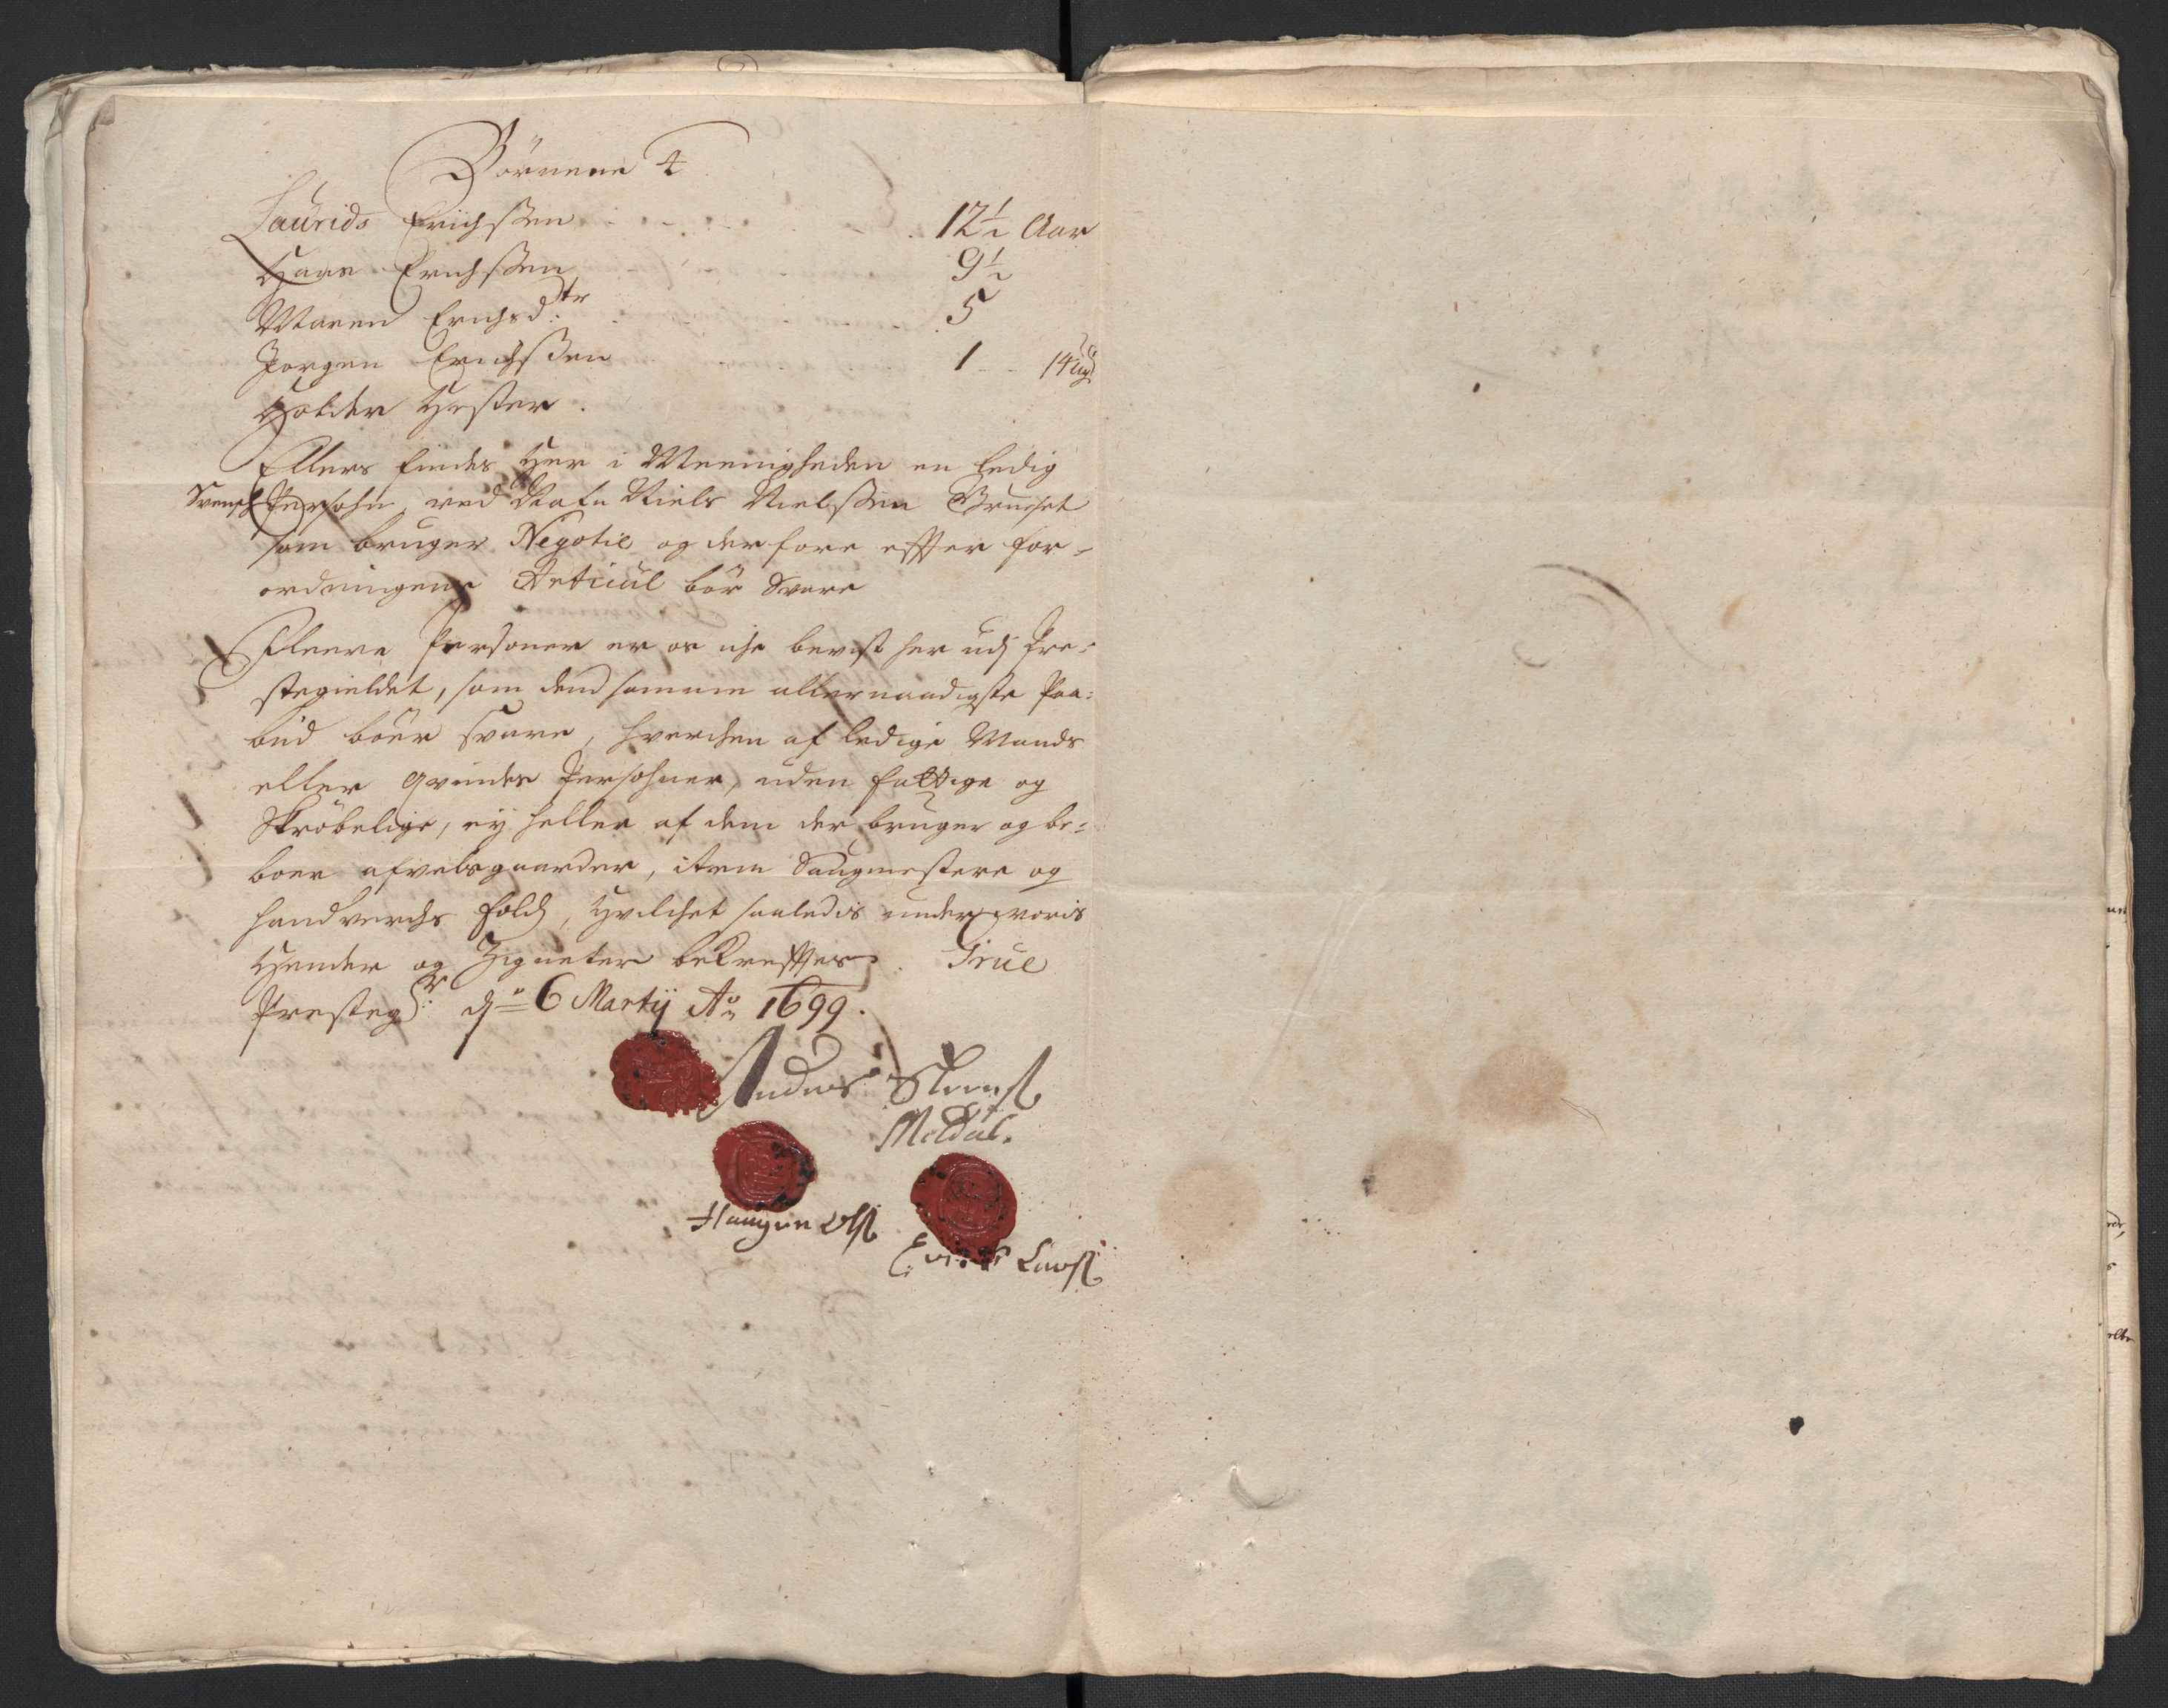 Börnene 4
Laurids Erichsen 12½ Aar
Hans Erichsen 9½
Maren Erichsd:tr 5
Jørgen Erichsen 1 14 ug
Holder Hester.
Ellers findes her i Meenigheden en ledig
Svensch Persohn, ved Nafn Niels Nielsen
som bruger Negotie og derfore effter for-
ordningens Articul bör Svare
Fleere Personer er os iche bevist her udj Pre-
stegieldet, som dend samme allernaadigste Paa-
bud böer svare, hverchen af ledige Mands
eller qvindes Persohner, uden fattige og
Skröbelige, ey heller af dem der bruger og be-
boer afvelsgaarder, item Saugmestere og
handverchs folch, hvilchet saaledis under voris
Hender og Zigneter bekrefftes. True
Presteg:r d: 6 Martij Ao 1699.
Anders
Haagen Olss
Larss